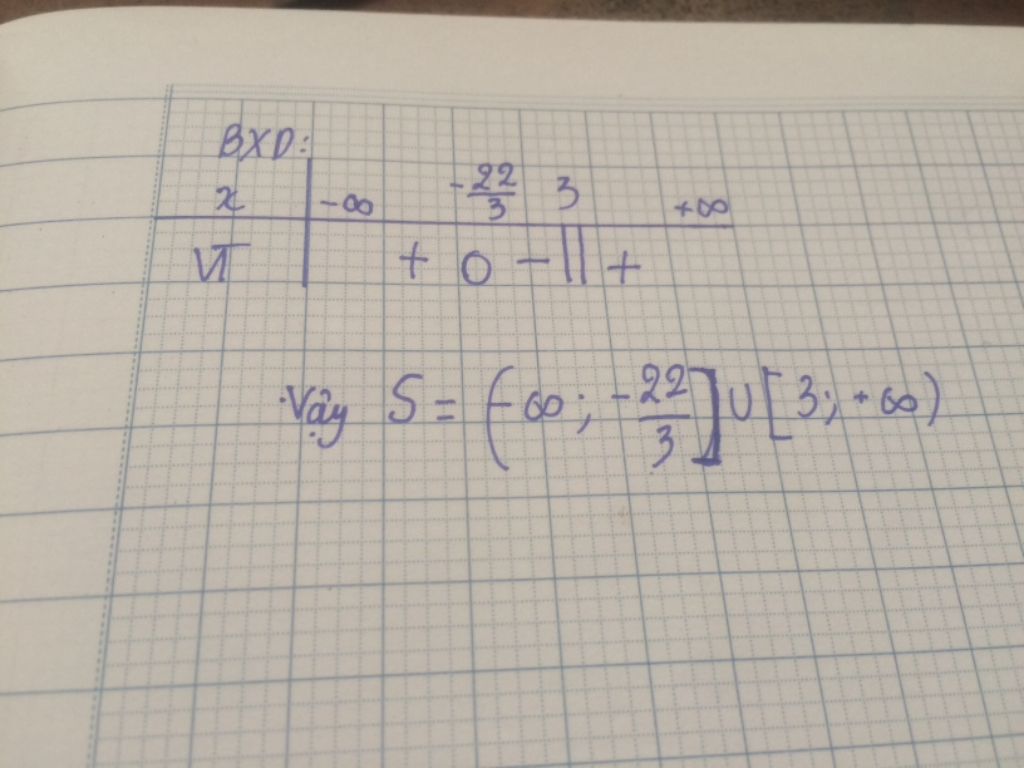 BXD:
x -∞ -22/3 3 +∞
VT + 0 - || +
Vậy S = (-∞; -22/3] ∪ [3; +∞)